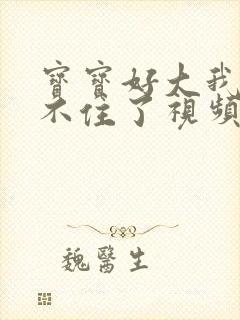 寶寶好大我
不住了視頻
魏醫生